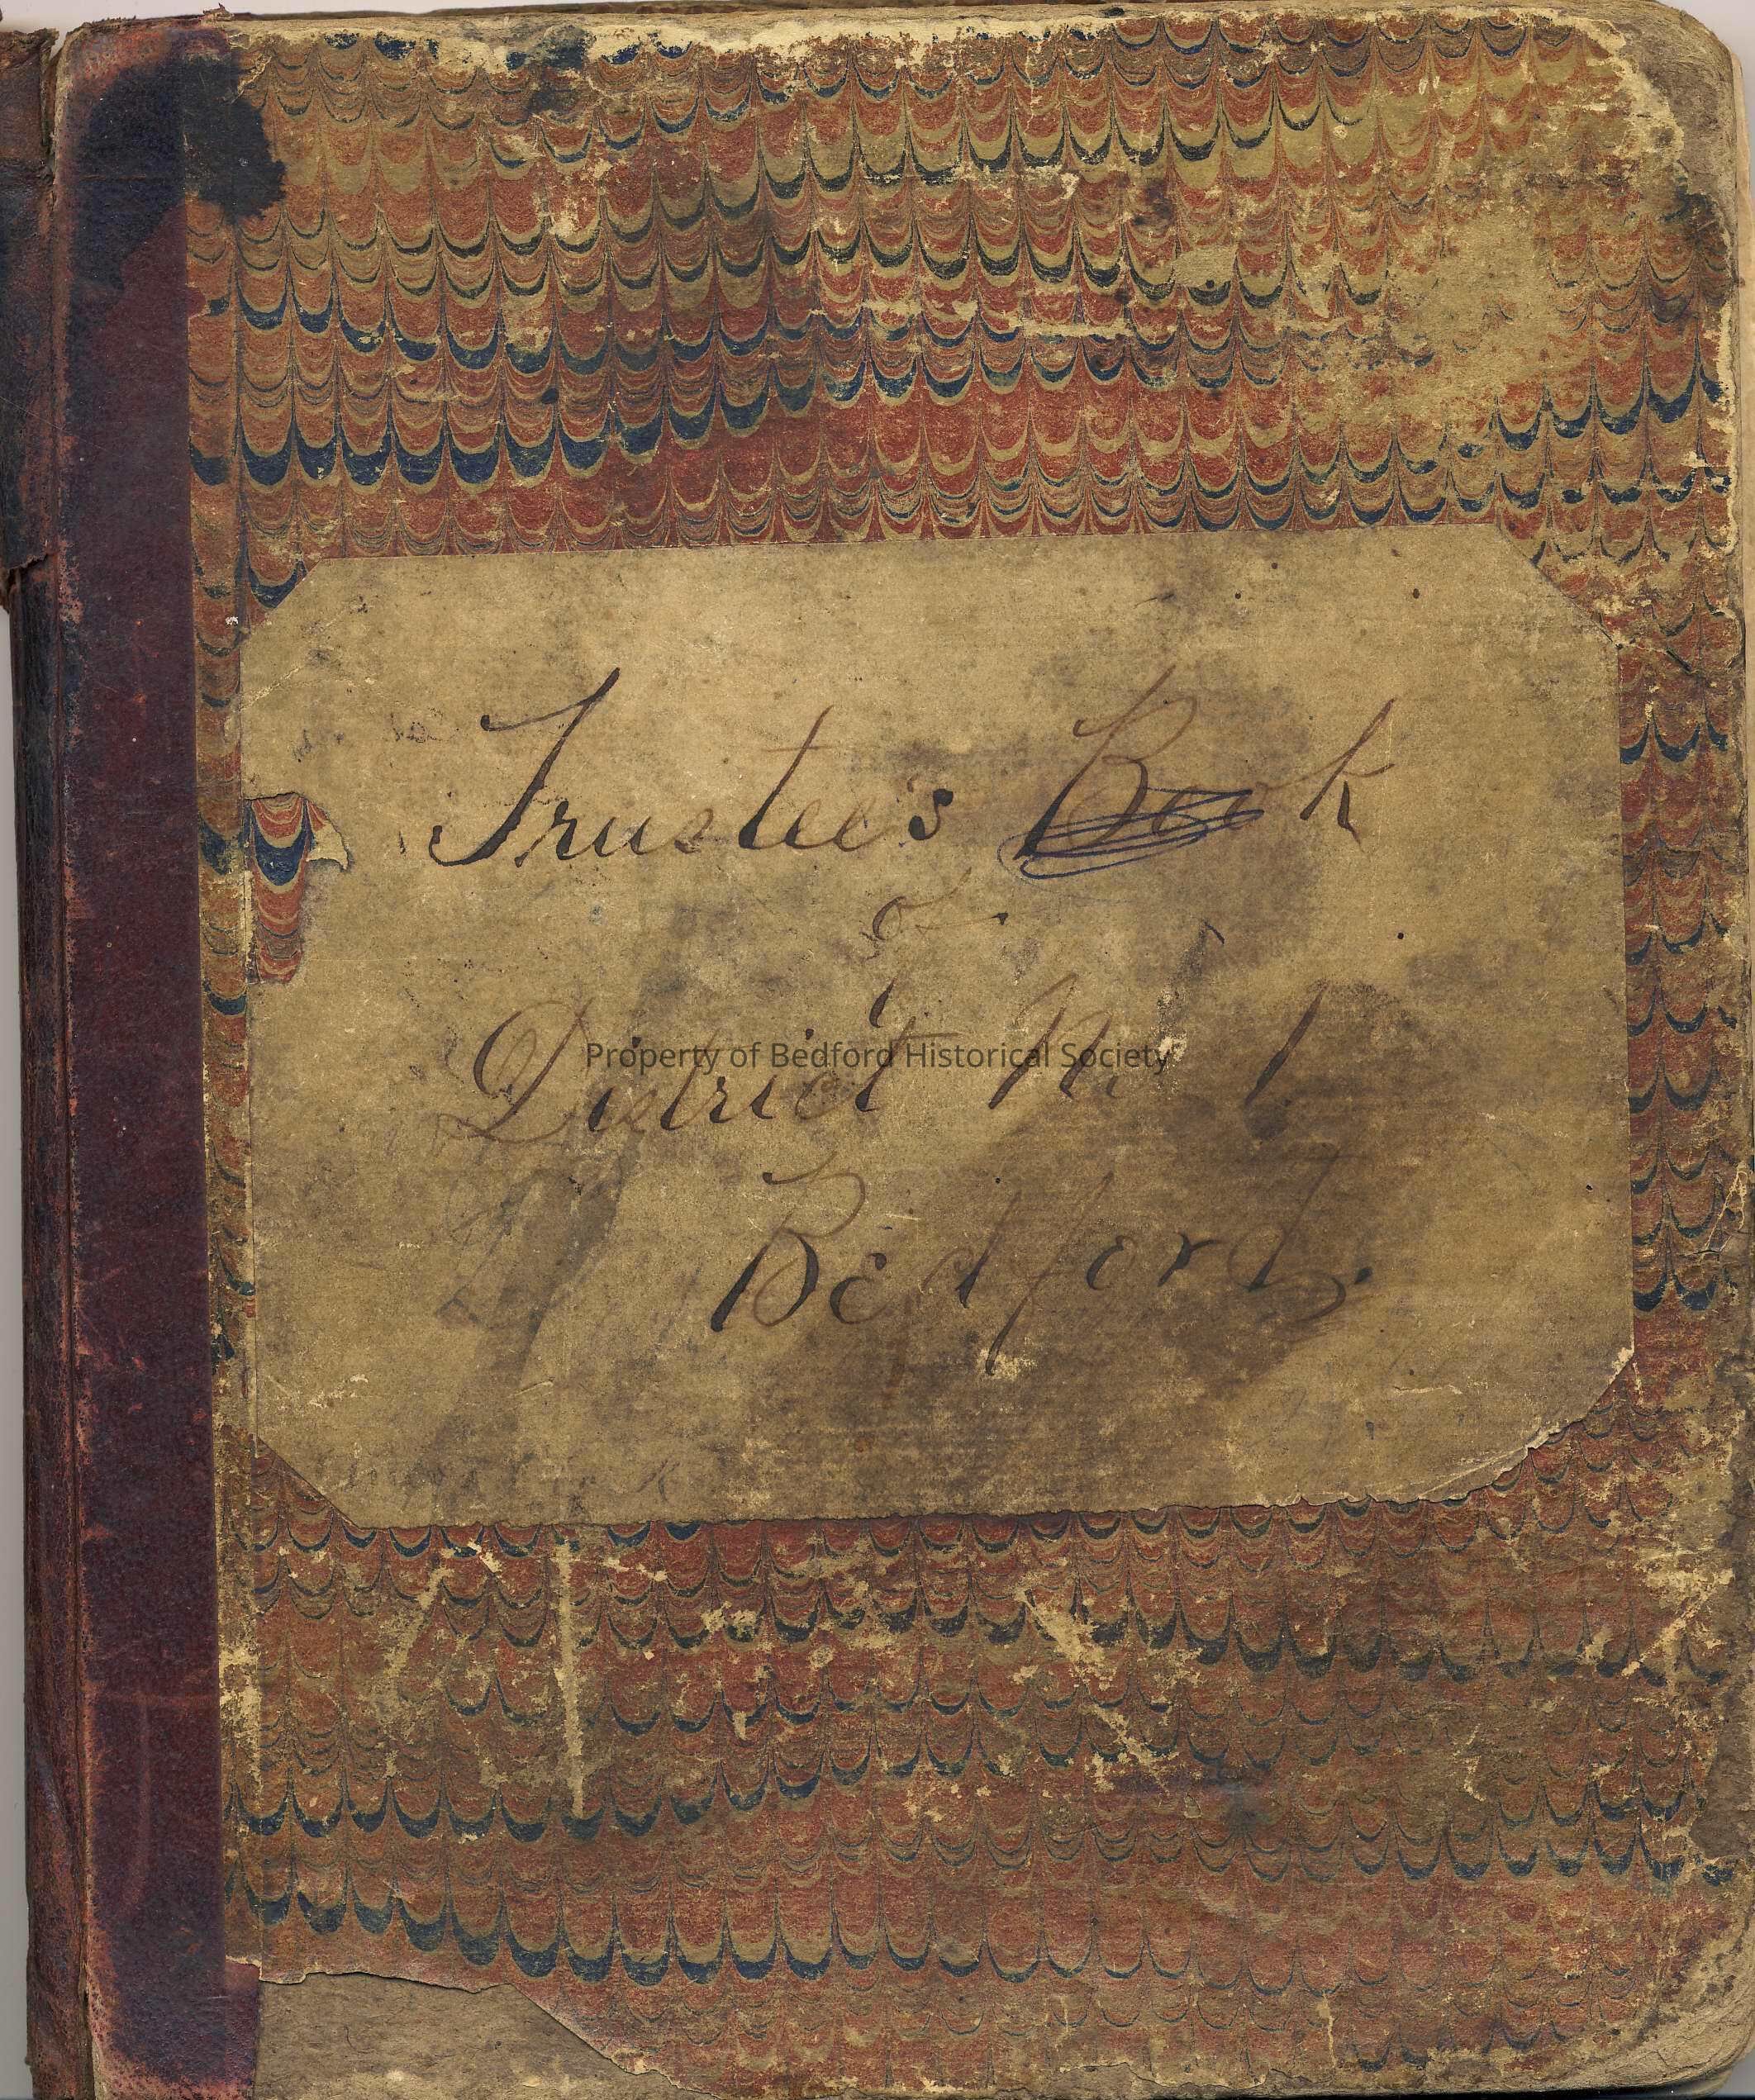 Trustee's Book
of
District No. 1.
Property of Bedford Historical Society
Bedford.